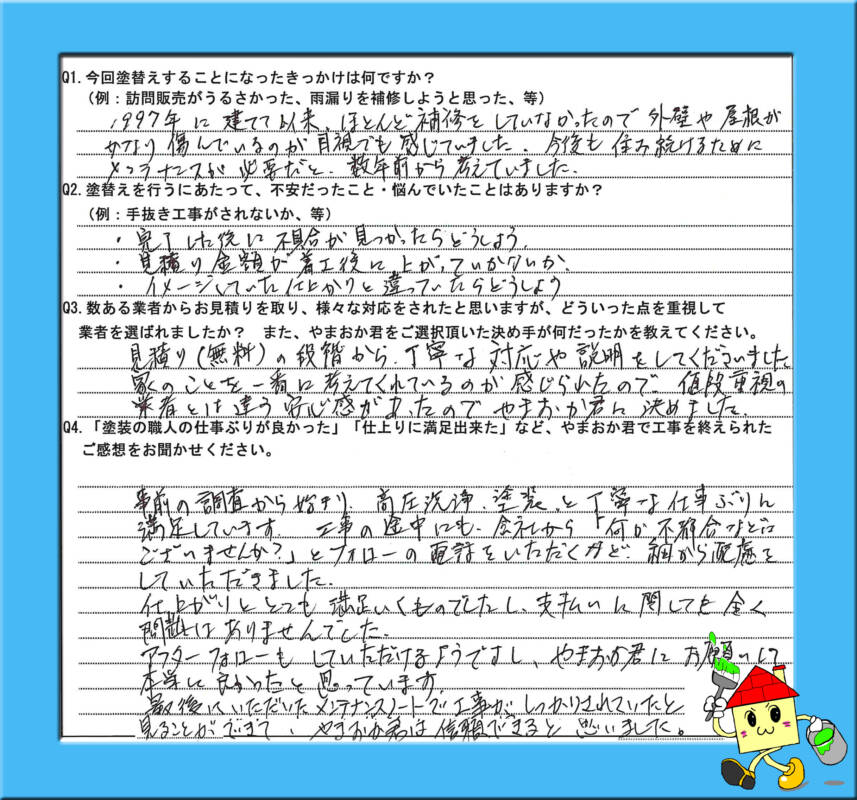 Q1.今回塗替えすることになったきっかけは何ですか？
（例：訪問販売がうるさかった、雨漏りを補修しようと思った、等）
1997年に建てて以来、ほとんど補修をしていなかったので外壁や屋根が
かなり傷んでいるのが目視でも感じていました。今後も住み続けるために
メンテナンスが必要だと、数年前から考えていました。
Q2.塗替えを行うにあたって、不安だったこと・悩んでいたことはありますか？
（例：手抜き工事がされないか、等）
・完了した後に不具合が見つかったらどうしよう。
・見積り金額が着工後に上がっていかないか。
・イメージしていた仕上がりと違っていたらどうしよう
Q3.数ある業者からお見積りを取り、様々な対応をされたと思いますが、どういった点を重視して
業者を選ばれましたか？　また、やまおか君をご選択頂いた決め手が何だったかを教えてください。
見積り(無料)の段階から、丁寧な対応や説明をしてくださいました
家のことを一番に考えてくれているのが感じられたので、値段重視の
業者とは違う安心感があったのでやまおか君に決めました。
Q4.「塗装の職人の仕事ぶりが良かった」「仕上りに満足出来た」など、やまおか君で工事を終えられた
ご感想をお聞かせください。
事前の調査から始まり、高圧洗浄、塗装、と丁寧な仕事ぶりに
満足しています。工事の途中にも、会社から「何か不都合などは
ございませんか？」とフォローの電話をいただくなど、細かい配慮を
していただきました。
仕上がりもとても満足いくものでしたし、支払いに関しても全く
問題はありませんでした。
アフターフォローもしていただけるようですし、やまおか君にお願いして
本当に良かったと思っています。
最後にいただいたメンテナンスノートで工事がしっかりされていたと
見ることができて、やまおか君は信頼できると思いました。